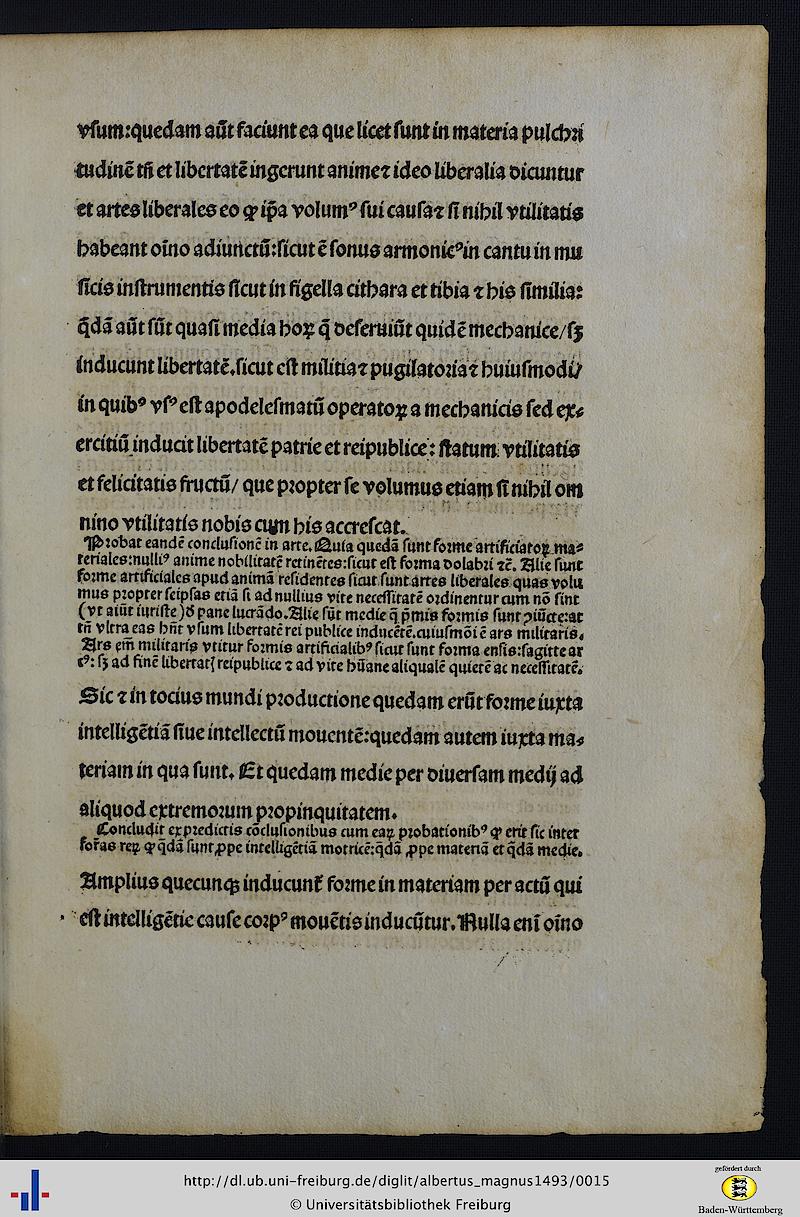 vſum:quedam aūt faciunt ea que licet ſunt in materia pulchri
tudinē tñ et libertatē ingerunt anime⁊ ideo liberalia dicuntur
et artes liberales eo ꝙ ip̄a volumꝰ ſui cauſa⁊ ſi nihil vtilitatis
habeant oīno adiunctū:ſicut ē ſonus armonicꝰin cantu in mu
ſicis inſtrumentis ſicut in figella cithara et tibia ⁊ his ſimilia:
q̄dā aūt ſūt quaſi media hoꝝ q̄ deſeruiūt quidē mechanice/ſꝫ
inducunt libertatē.ſicut eſt militia⁊ pugilatoria⁊ huiuſmodi/
in quibꝰ vſꝰ eſt apodeleſmatū operatoꝝ a mechanicis ſed ex⸗
ercitiū inducit libertatē patrie et reipublice: ſtatum vtilitatis
et felicitatis fructū/ que propter ſe volumus etiam ſi nihil om
nino vtilitatis nobis cum his accreſcat.
Probat eandē concluſionē in arte. Quia quedā ſunt forme artificiatoꝝ ma⸗
teriales:nulliꝰ anime nobilitatē retinētes:ſicut eſt forma dolabri ⁊ē. Alie ſunt
forme artificiales apud animā reſidentes ſicut ſunt artes liberales quas volu
mus propter ſeipſas etiā ſi ad nullius vite neceſſitatē ordinentur cum nō ſint
(vt aiūt iuriſte)đ pane lucrādo.Alie ſūt medie q̄ p̄mis formis ſunt ↄiūcte:at
tñ vltra eas hñt vſum libertatē rei publice inducētē.cuiuſmōi ē ars militaris.
Ars em̄ militaris vtitur formis artificialibꝰ ſicut ſunt forma enſis:ſagitte ar
cꝰ: ſꝫ ad finē libertatꝭ reipublice ⁊ ad vite hūane aliqualē quietē ac neceſſitatē.
Sic ⁊ in tocius mundi productione quedam erūt forme iuxta
intelligētiā ſiue intellectū mouentē:quedam autem iuxta ma⸗
teriam in qua ſunt. Et quedam medie per diuerſam medij ad
aliquod extremorum propinquitatem.
Concludit ex predictis cōcluſionibus cum eaꝝ probationibꝰ ꝙ erit ſic inter
for̄as reꝝ ꝙ q̄dā ſunt ꝓpe intelligētiā motricē:q̄dā ꝓpe materiā et q̄dā medie.
Amplius quecunqꝫ inducunt̄ forme in materiam per actū qui
eſt intelligētie cauſe corpꝰ mouētis inducūtur. Nulla eni oīno
http://dl.ub.uni-freiburg.de/diglit/albertus_magnus1493/0015
© Universitätsbibliothek Freiburg
gefördert durch
Baden-Württemberg